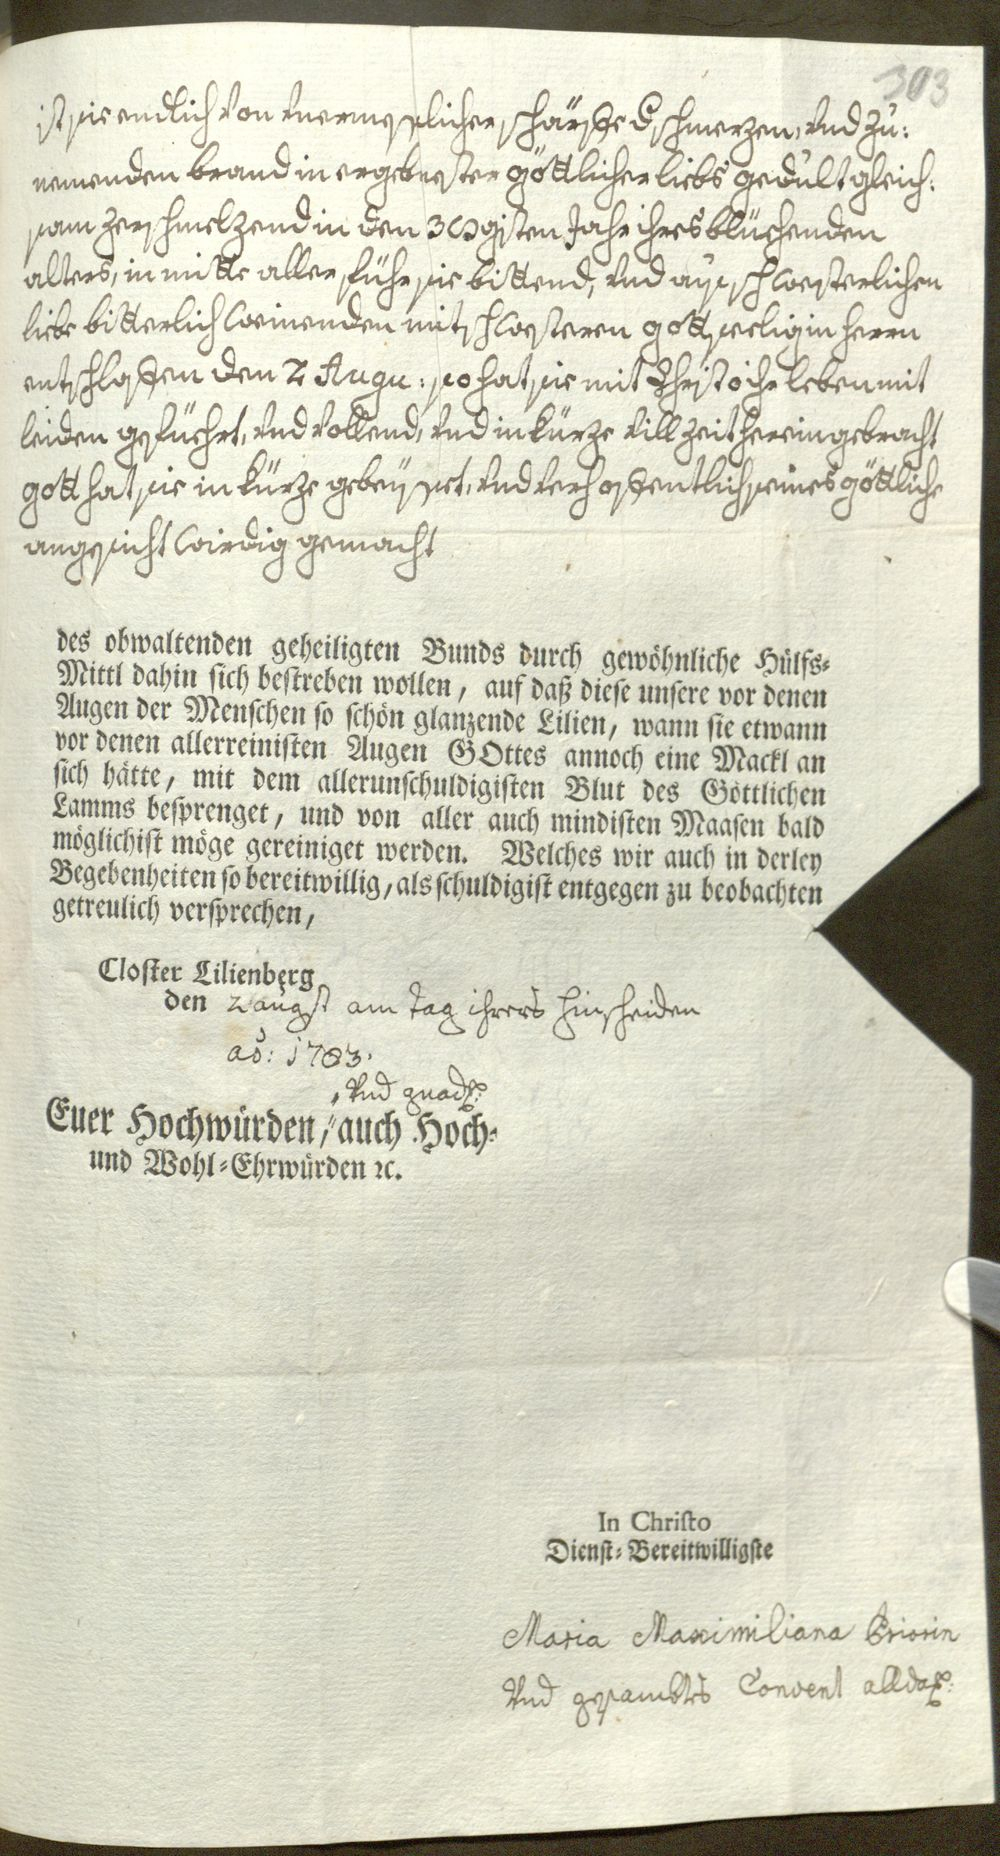 303
ist sie endlich von unermeslicher schärffe d schmerzen, und zu:
nemenden brand in ergebnester göttlicher liebs gedult gleich:
sam zerschmelzend in den 30gisten Jahr ihres blüehenden
alters, in mitte aller führ sie bittend, und auß schwesterlichen
liebe bitterlich weinenden mitschwesteren gottseelig in herrn
entschlaffen den 2 Augu: so hat sie mit Christo ihr leben mit
leiden geführt, und vollend, und in kürze vill zeit hereingebracht
gott hat sie in kürze gebeüsset, und verhoffentlich seines göttliche
angesicht wirdig gemacht
des obwaltenden geheiligten Bunds durch gewöhnliche Hülfs-
Mittl dahin sich bestreben wollen, auf daß diese unsere vor denen
Augen der Menschen so schön glanzende Lilien, wann sie etwann
vor denen allerreinisten Augen GOttes annoch eine Mackl an
sich hätte, mit dem allerunschuldigisten Blut des Göttlichen
Lamms besprenget, und von aller auch mindisten Maasen bald
möglichist möge gereiniget werden. Welches wir auch in derley
Begebenheiten so bereitwillig, als schuldigist entgegen zu beobachten
getreulich versprechen,
Closter Lilienberg
den 2 augst am tag ihrers hinscheiden
ao: 1783.
, und gnad:
Euer Hochwürden, auch Hoch-
und Wohl-Ehrwürden ꝛc.
In Christo
Dienst-Bereitwilligste
Maria Maximiliana Priorin
und gesambtes Convent allda: